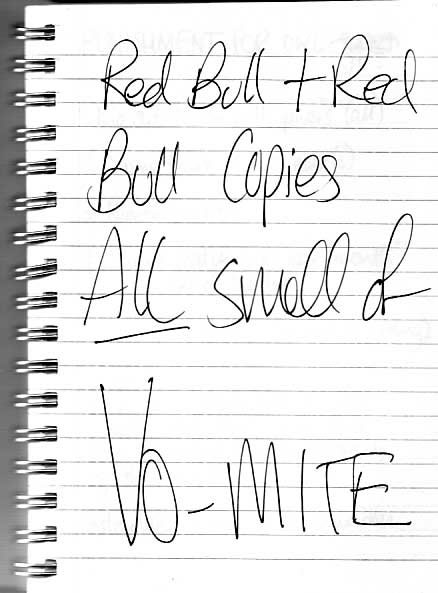 Red Bull + Red
Bull Copies
All smell of
VO-MITE